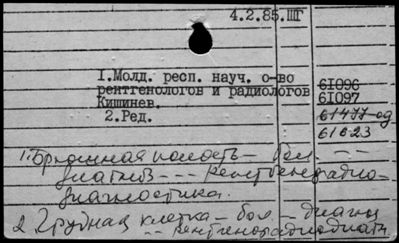 4.2.85.ШТ
1.Молд. респ. науч. о-во
рентгенологов и радиологов
Кишинев.
2.Ред.
61096
61097
61477-од
61623
1) Брюшная полость - бол. ---
диагноз --- Рентгенорадио-
диагностика.
2 Грудная клетка - бол. - диагн
-- рентгенорадиодиагн